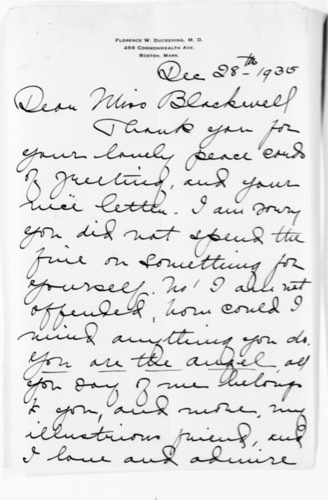 FLORENCE W. DUCKERING, M. D.
466 COMMONWEALTH AVE.
BOSTON, MASS.
Dec 28th - 1935
Dear Miss Blackwell
Thank you for
your lovely peace cards
of greeting, and your
nice letter. I am sorry
you did not spend the
five on something for
yourself. No! I am not
offended, how could I
mind anything you do.
You are the angel, all
you say of me belongs
to you, and more, my
illustrious friend, and
I love and admire